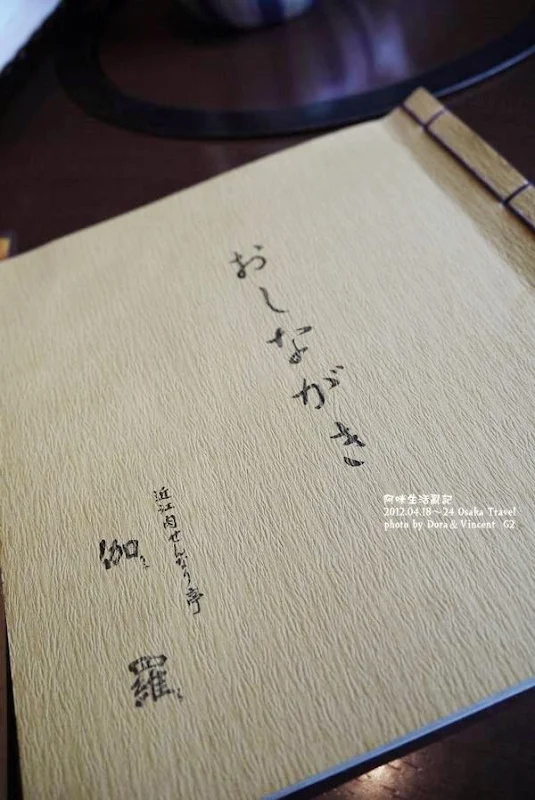 おしながき
近江肉せんなり亭
伽羅
阿咪生活戳記
2012.04.18～24 Osaka Travel
photo by Dora & Vincent G2